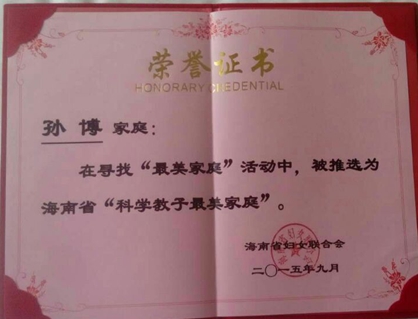 荣誉证书
HONORARY CREDENTIAL
孙博家庭：
在寻找“最美家庭”活动中，被推选为
海南省“科学教子最美家庭”。
海南省妇女联合会
二〇一五年九月